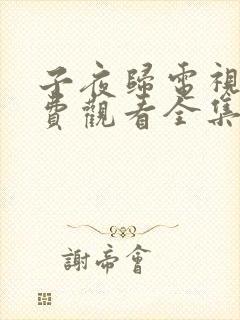 子夜歸電視
費觀看全集
謝帝會